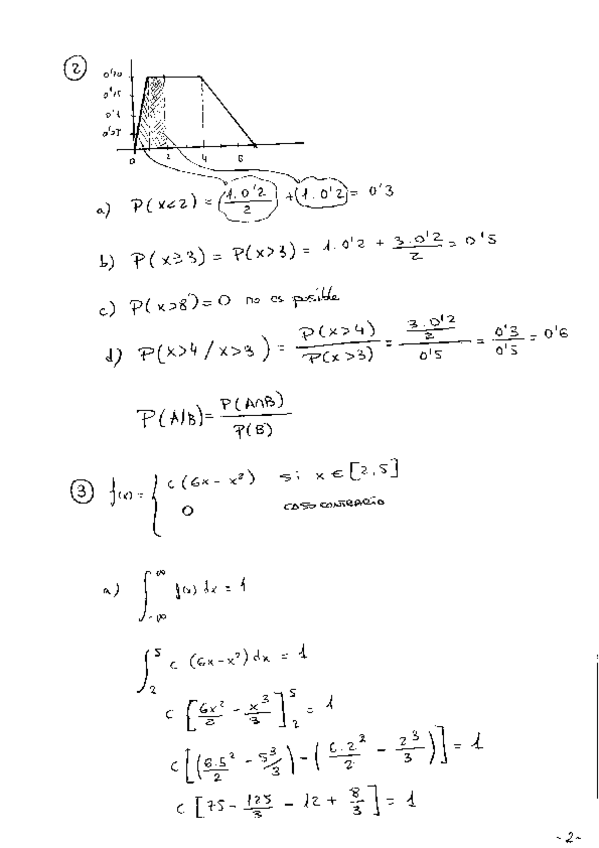 2
0'20
0'15
0'1
0'05
0 2 4 6
a) P(x<2) = 1·0'2/2 + (1·0'2) = 0'3
b) P(x≥3) = P(x>3) = 1·0'2 + 3·0'2/2 = 0'5
c) P(x>8) = 0 no es posible
d) P(x>4 / x>3) = P(x>4)/P(x>3) = (3·0'2/2)/0'5 = 0'3/0'5 = 0'6
P(A/B) = P(A∩B)/P(B)
3 f(x) = { c(6x - x²) si x ∈ [2,5]
0 caso contrario
a) ∫_{-∞}^{∞} f(x) dx = 1
∫_2^5 c (6x-x²) dx = 1
c [6x²/2 - x³/3]_2^5 = 1
c [(6·5²/2 - 5³/3) - (6·2²/2 - 2³/3)] = 1
c [75 - 125/3 - 12 + 8/3] = 1
-2-